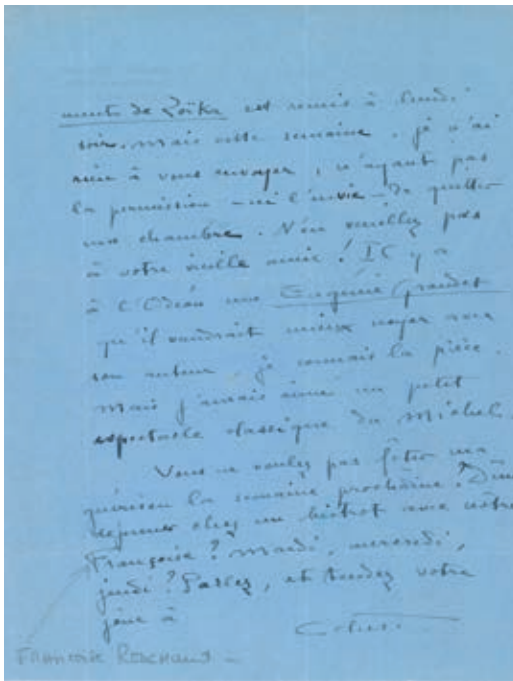 ments de Zoïka est remis à lundi
soir. Mais cette semaine, je n'ai
rien à vous envoyer, n'ayant pas
la permission – ni l'envie – de quitter
ma chambre. N'en veuillez pas
à votre vieille amie ! Il y a
à l'Odéon une Eugénie Grandet
qu'il vaudrait mieux noyer avec
son auteur. Je connais la pièce.
Mais j'aurais aimé un petit
spectacle classique du Michel.
Vous ne voulez pas fêter ma
guérison la semaine prochaine ?
déjeuner chez un bistrot avec votre
Françoise ? Mardi, mercredi,
jeudi ? Parlez, et tendez votre
joue à
Colette
Françoise